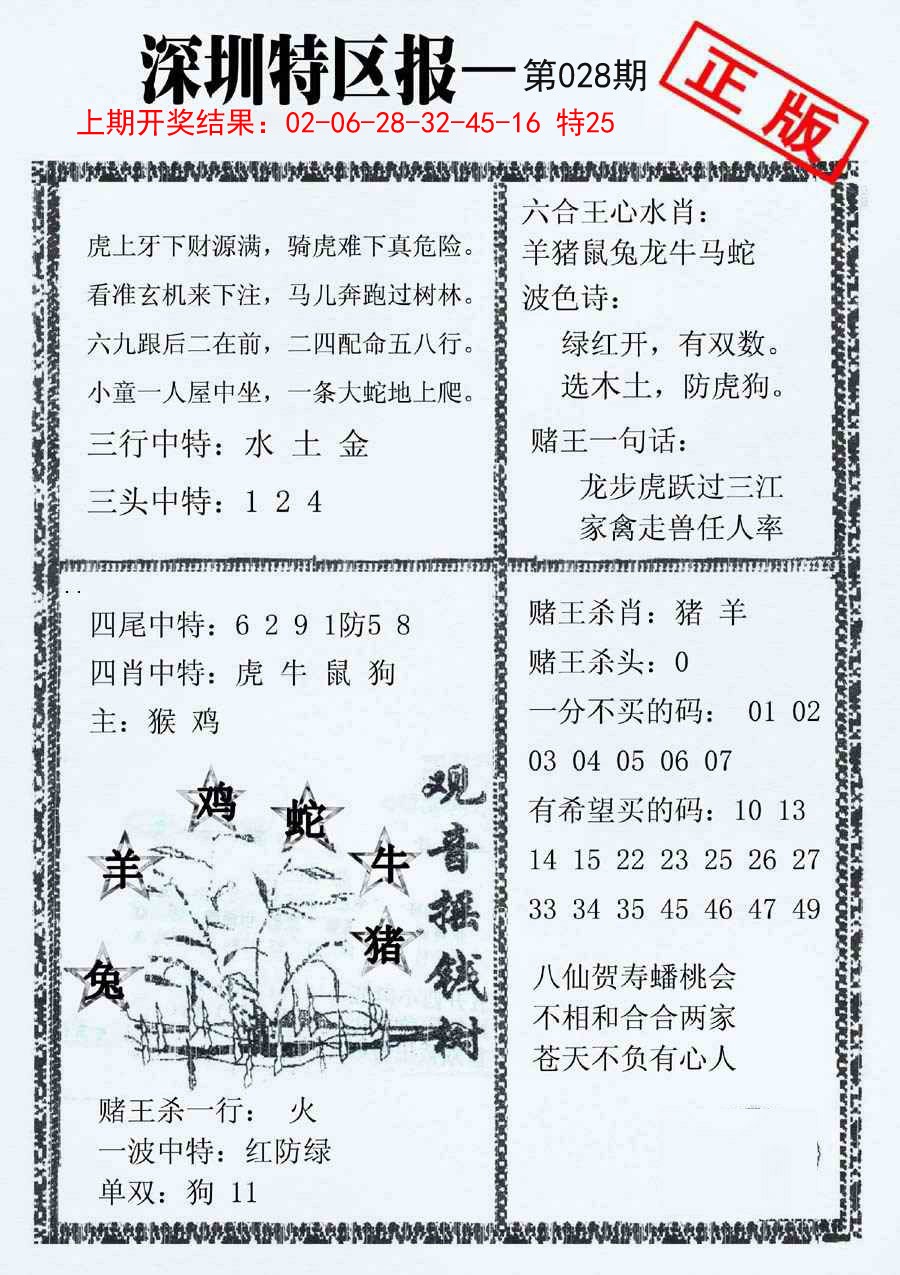 深圳特区报—第028期
正版
上期开奖结果：02-06-28-32-45-16 特25
虎上牙下财源满，骑虎难下真危险。
看准玄机来下注，马儿奔跑过树林。
六九跟后二在前，二四配命五八行。
小童一人屋中坐，一条大蛇地上爬。
三行中特：水 土 金
三头中特：1 2 4
六合王心水肖：
羊猪鼠兔龙牛马蛇
波色诗：
绿红开，有双数。
选木土，防虎狗。
赌王一句话：
龙步虎跃过三江
家禽走兽任人率
四尾中特：6 2 9 1防5 8
四肖中特：虎 牛 鼠 狗
主：猴 鸡
鸡
蛇
羊
牛
猪
兔
观音摇钱树
赌王杀一行： 火
一波中特：红防绿
单双：狗 11
赌王杀肖：猪 羊
赌王杀头：0
一分不买的码： 01 02
03 04 05 06 07
有希望买的码：10 13
14 15 22 23 25 26 27
33 34 35 45 46 47 49
八仙贺寿蟠桃会
不相和合合两家
苍天不负有心人